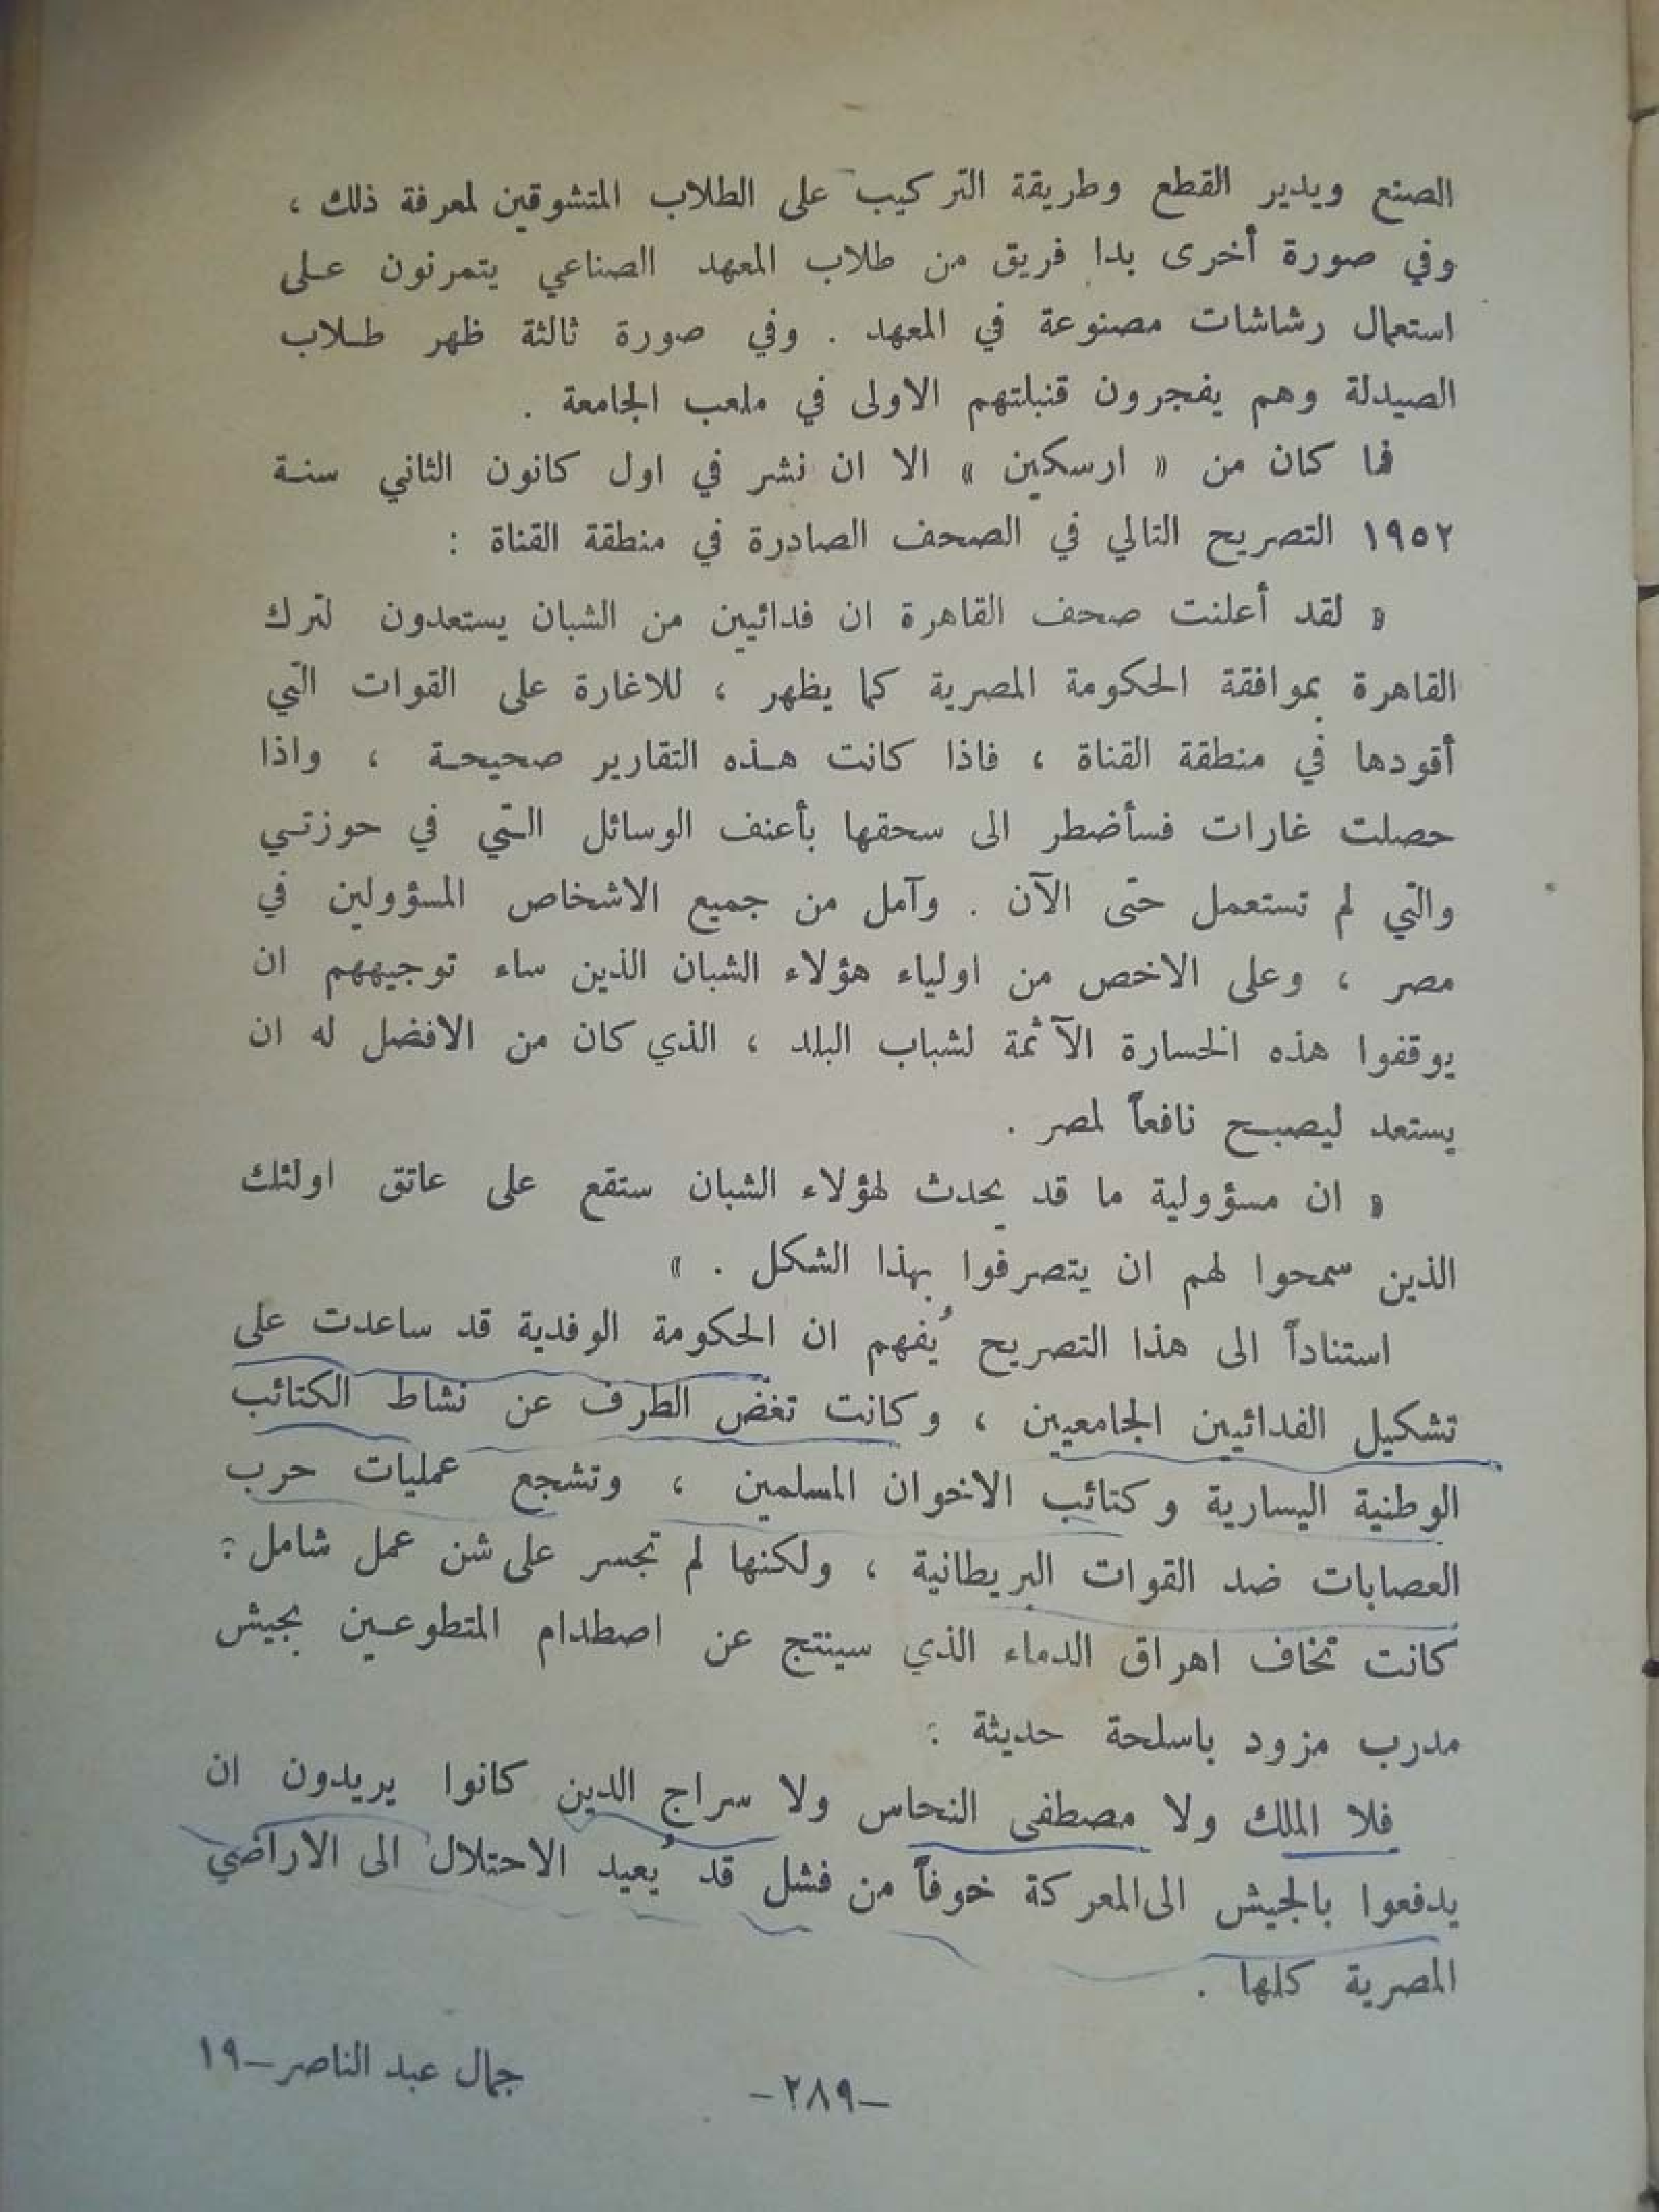 الصنع ويدير القطع وطريقة التركيب على الطلاب المتشوقين لمعرفة ذلك ،
وفي صورة أخرى بدا فريق من طلاب المعهد الصناعي يتمرنون عـلى
استعمال رشاشات مصنوعة في المعهد . وفي صورة ثالثة ظهر طـلاب
الصيدلة وهم يفجرون قنبلتهم الاولى في ملعب الجامعة .
فما كان من « ارسكين » الا ان نشر في اول كانون الثاني سنـة
١٩٥٢ التصريح التالي في الصحف الصادرة في منطقة القناة :
« لقد أعلنت صحف القاهرة ان فدائيين من الشبان يستعدون لترك
القاهرة بموافقة الحكومة المصرية كما يظهر ، للاغارة على القوات التي
أقودها في منطقة القناة ، فاذا كانت هـذه التقارير صحيحـة ، واذا
حصلت غارات فسأضطر الى سحقها بأعنف الوسائل الـتي في حوزتـي
والتي لم تستعمل حتى الآن . وآمل من جميع الاشخاص المسؤولين في
مصر ، وعلى الاخص من اولياء هؤلاء الشبان الذين ساء توجيههم ان
يوقفوا هذه الخسارة الآثمة لشباب البلد ، الذي كان من الافضل له ان
يستعد ليصبـح نافعاً لمصر .
« ان مسؤولية ما قد يحدث لهؤلاء الشبان ستقع على عاتق اولئك
الذين سمحوا لهم ان يتصرفوا بهذا الشكل . »
استناداً الى هذا التصريح يُفهم ان الحكومة الوفدية قد ساعدت على
تشكيل الفدائيين الجامعيين ، وكانت تغضّ الطرف عن نشاط الكتائب
الوطنية اليسارية وكتائب الاخوان المسلمين ، وتشجع عمليات حرب
العصابات ضد القوات البريطانية ، ولكنها لم تجسر على شن عمل شامل :
كانت تخاف اهراق الدماء الذي سينتج عن اصطدام المتطوعـين بجيش
مدرب مزود باسلحة حديثة :
فلا الملك ولا مصطفى النحاس ولا سراج الدين كانوا يريدون ان
يدفعوا بالجيش الى المعركة خوفاً من فشل قد يُعيد الاحتلال الى الاراضي
المصرية كلها .
جمال عبد الناصر–١٩
–٢٨٩–